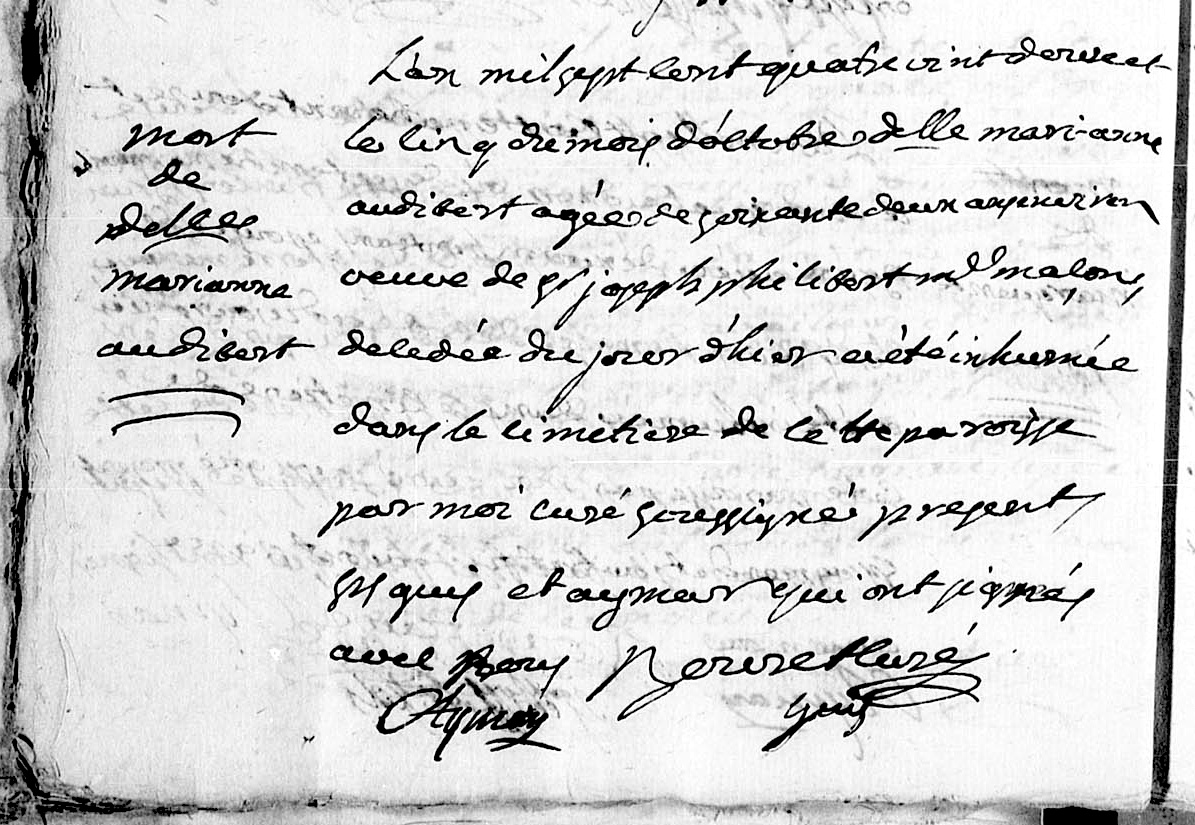 mort
de
delle
marianne
audibert
L'an mil sept cent quatre vint douze et
le cinq du mois d'octobre delle mari-anne
audibert agée de soixante deux ans environ
veuve de sr joseph philibert md malons
decedée du jour d'hier a été inhumée
dans le cimetière de cette paroisse
par moi curé soussigné présents
srs guis et aymar qui ont signés
avec nous Rouvet curé
Aymar guis